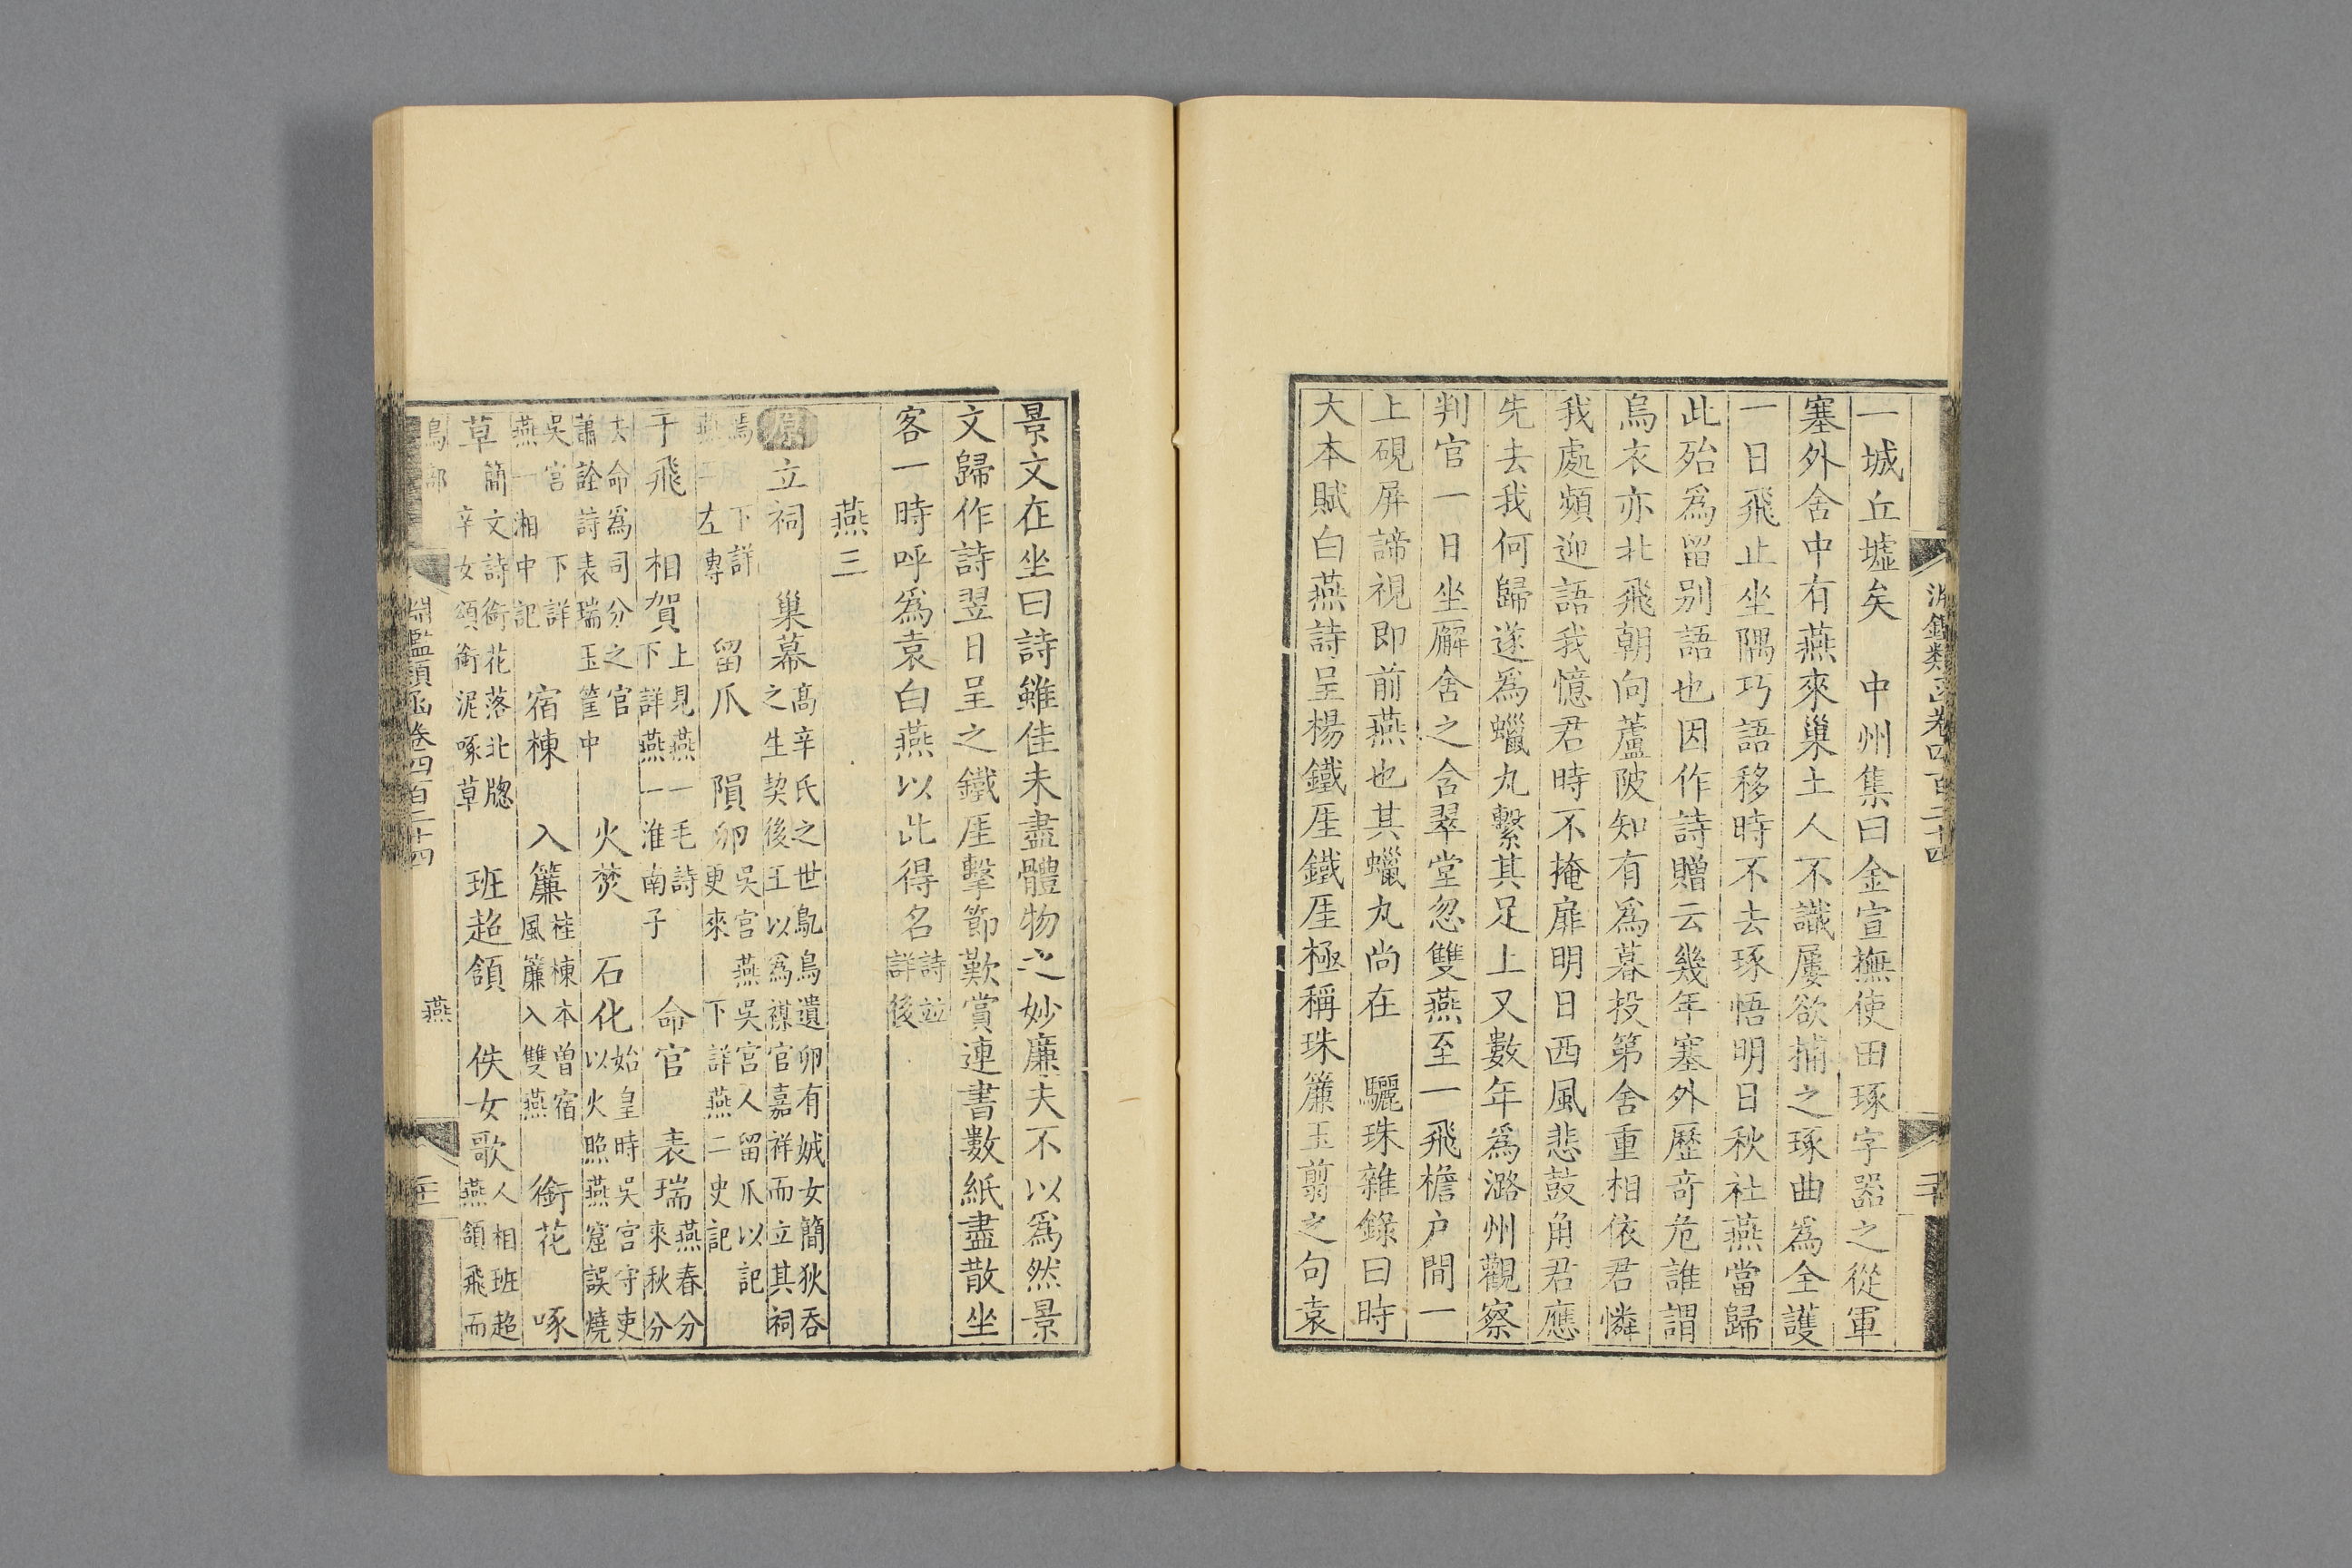 淵鑑類函卷四百二十四
一城丘墟矣　中州集曰金宣撫使田琢字器之從軍
塞外舍中有燕來巢土人不識屢欲捕之琢曲爲全護
一日飛止坐隅巧語移時不去琢悟明日秋社燕當歸
此殆爲留别語也因作詩贈云幾年塞外歷奇危誰謂
烏衣亦北飛朝向蘆陂知有爲暮投第舍重相依君憐
我處頻迎語我憶君時不掩扉明日西風悲鼓角君應
先去我何歸遂爲蠟丸繫其足上又數年爲潞州觀察
判官一日坐廨舍之含翠堂忽雙燕至一飛檐户間一
上硯屏諦視即前燕也其蠟丸尚在　驪珠雜錄曰時
大本賦白燕詩呈楊鐵厓鐵厓極稱珠簾玉翦之句袁
景文在坐曰詩雖佳未盡體物之妙廉夫不以爲然景
文歸作詩翌日呈之鐵厓擊節歎賞連書數紙盡散坐
客一時呼爲袁白燕以此得名詩並詳後
燕三
原立祠　巢幕高辛氏之世鳦鳥遺卵有娀女簡狄吞之生契後王以爲禖官嘉祥而立其祠
焉下詳燕左傳　留爪　隕卵吳宮燕吳宮人留爪以記更來下詳燕二史記
于飛　相賀上見燕一毛詩下詳燕一淮南子　命官　表瑞燕春分來秋分
去命爲司分之官蕭詮詩表瑞玉筐中　火焚　石化始皇時吳宮守吏以火照燕窟誤燒
吳宮下詳燕一湘中記　宿棟　入簾桂棟本曾宿風簾入雙燕　銜花　啄
草簡文詩銜花落北牎辛女頌銜泥啄草　班超頷　佚女歌人相班超燕頷飛而
鳥部
淵鑑類函卷四百二十四
燕